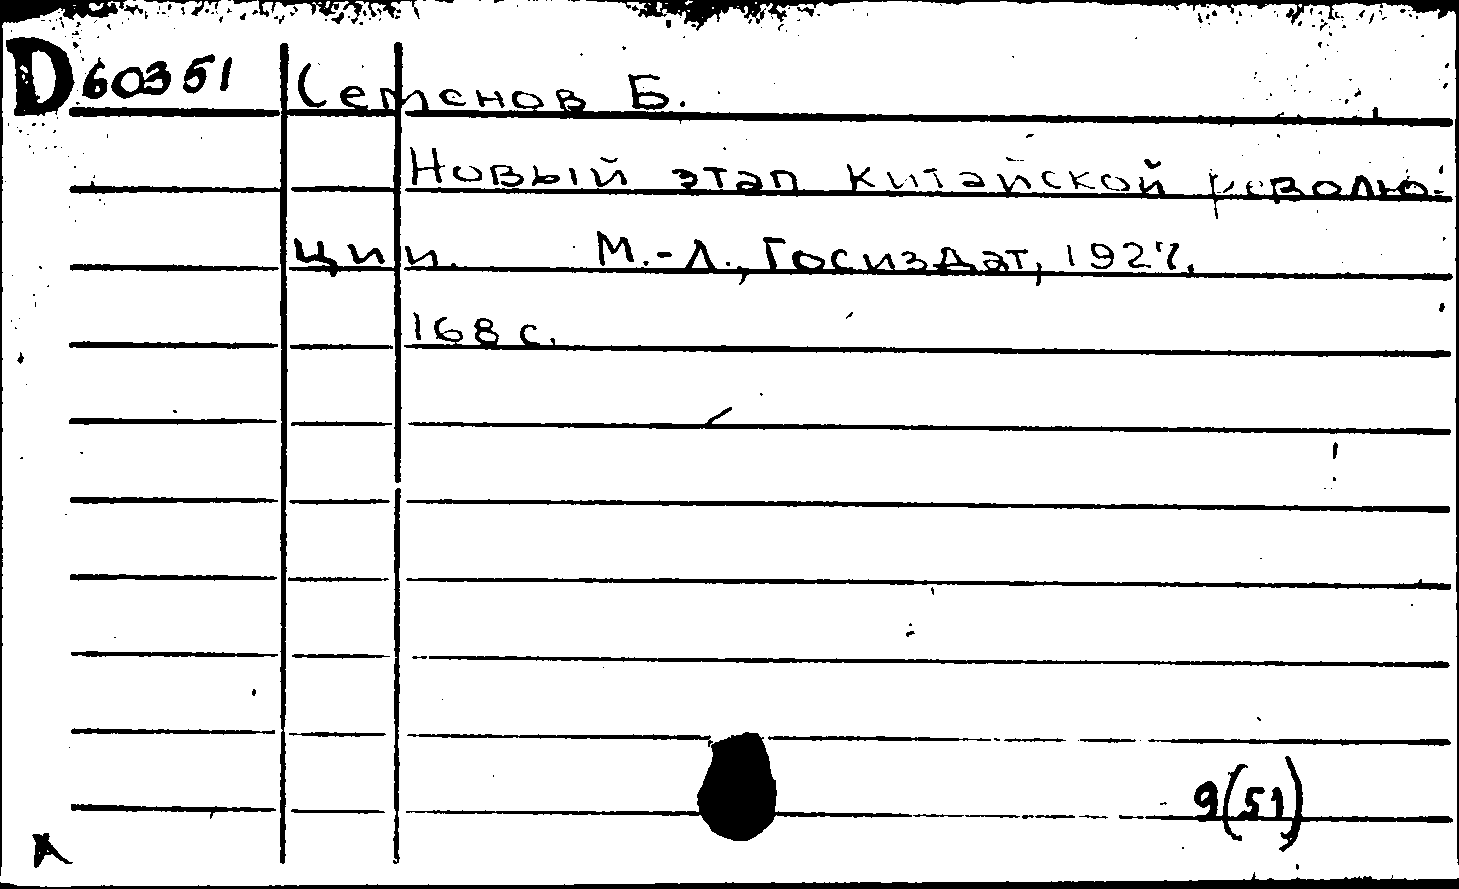 D60351 Семенов Б.
Новый этап китайской револю-
ции. М.-Л., Госиздат, 1927.
168 с.
9(51)
А